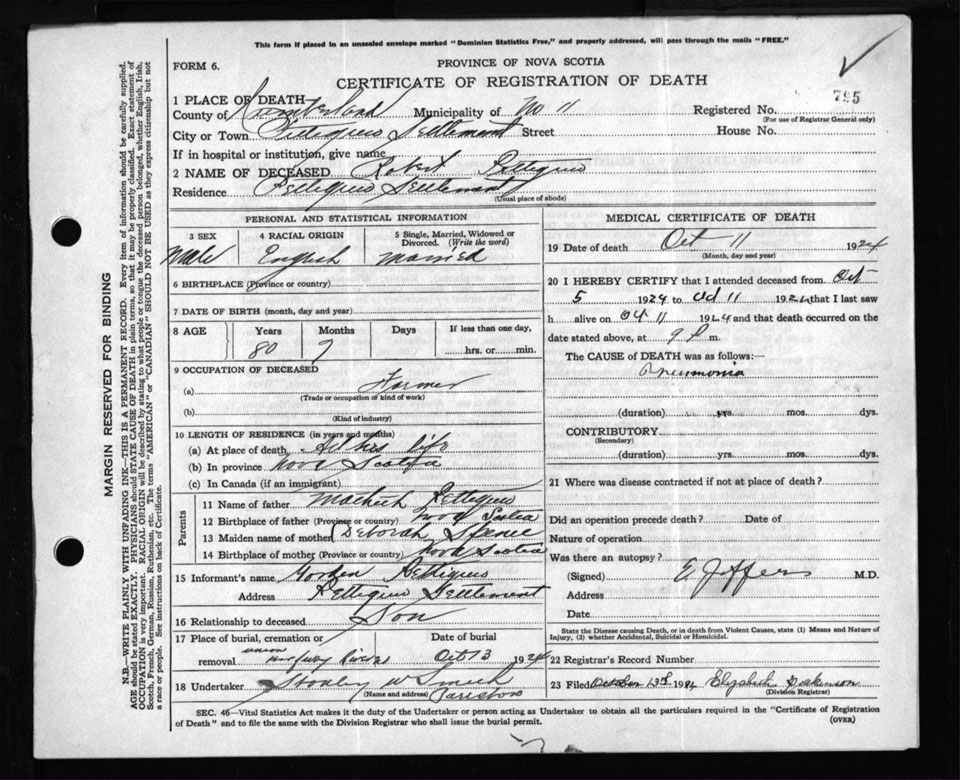 This form if placed in an unsealed envelope marked "Dominion Statistics Free," and properly addressed, will pass through the mails "FREE."
FORM 6.
PROVINCE OF NOVA SCOTIA
CERTIFICATE OF REGISTRATION OF DEATH
795
1 PLACE OF DEATH
County of Cumberland Municipality of No 11 Registered No.
(For use of Registrar General only)
City or Town Settlement Street House No.
If in hospital or institution, give name
2 NAME OF DECEASED Robert Pettigrew
Residence Pettigrew Settlement
(Usual place of abode)
MARGIN RESERVED FOR BINDING
N.B.—WRITE PLAINLY WITH UNFADING INK—THIS IS A PERMANENT RECORD. Every item of information should be carefully supplied.
AGE should be stated EXACTLY. PHYSICIANS should STATE CAUSE OF DEATH in plain terms, so that it may be properly classified. Exact statement of
OCCUPATION is very important. RACIAL ORIGIN will be described by stating to what people or tongue the deceased person belonged, whether English, Irish,
Scotch, French, German, Russian, Ruthenian, etc. The terms "AMERICAN" or "CANADIAN" SHOULD NOT BE USED as they express citizenship but not
a race or people. See instructions on back of Certificate.
PERSONAL AND STATISTICAL INFORMATION
3 SEX 4 RACIAL ORIGIN 5 Single, Married, Widowed or
Divorced. (Write the word)
Male English Married
6 BIRTHPLACE (Province or country)
7 DATE OF BIRTH (month, day and year)
8 AGE Years Months Days If less than one day,
80 9 hrs. or min.
9 OCCUPATION OF DECEASED
(a) Farmer
(Trade or occupation of kind of work)
(b)
(Kind of industry)
10 LENGTH OF RESIDENCE (in years and months)
(a) At place of death All his life
(b) In province Nova Scotia
(c) In Canada (if an immigrant)
Parents
11 Name of father Pettigrew
12 Birthplace of father (Province or country) Nova Scotia
13 Maiden name of mother Deborah
14 Birthplace of mother (Province or country) Nova Scotia
15 Informant's name Gordon Pettigrew
Address Pettigrew Settlement
16 Relationship to deceased Son
17 Place of burial, cremation or Date of burial
removal union Oct 13 1924
18 Undertaker Stanley W Smith
(Name and address) Parrsboro
MEDICAL CERTIFICATE OF DEATH
19 Date of death Oct 11 1924
(Month, day and year)
20 I HEREBY CERTIFY that I attended deceased from Oct
5 1924 to Oct 11 1924 that I last saw
h alive on Oct 11 1924 and that death occurred on
date stated above, at 9 P m.
The CAUSE of DEATH was as follows:—
Pneumonia
(duration) yrs. mos. dys.
CONTRIBUTORY
(Secondary)
(duration) yrs. mos. dys.
21 Where was disease contracted if not at place of death?
Did an operation precede death? Date of
Nature of operation
Was there an autopsy?
(Signed) E Jeffers M.D.
Address
Date
State the Disease causing Death, or in death from Violent Causes, state (1) Means and Nature of
Injury, (2) whether Accidental, Suicidal or Homicidal.
22 Registrar's Record Number
23 Filed October 13th 1924 Elizabeth Dickinson
(Division Registrar)
SEC. 46—Vital Statistics Act makes it the duty of the Undertaker or person acting as Undertaker to obtain all the particulars required in the "Certificate of Registration
of Death" and to file the same with the Division Registrar who shall issue the burial permit.
(OVER)